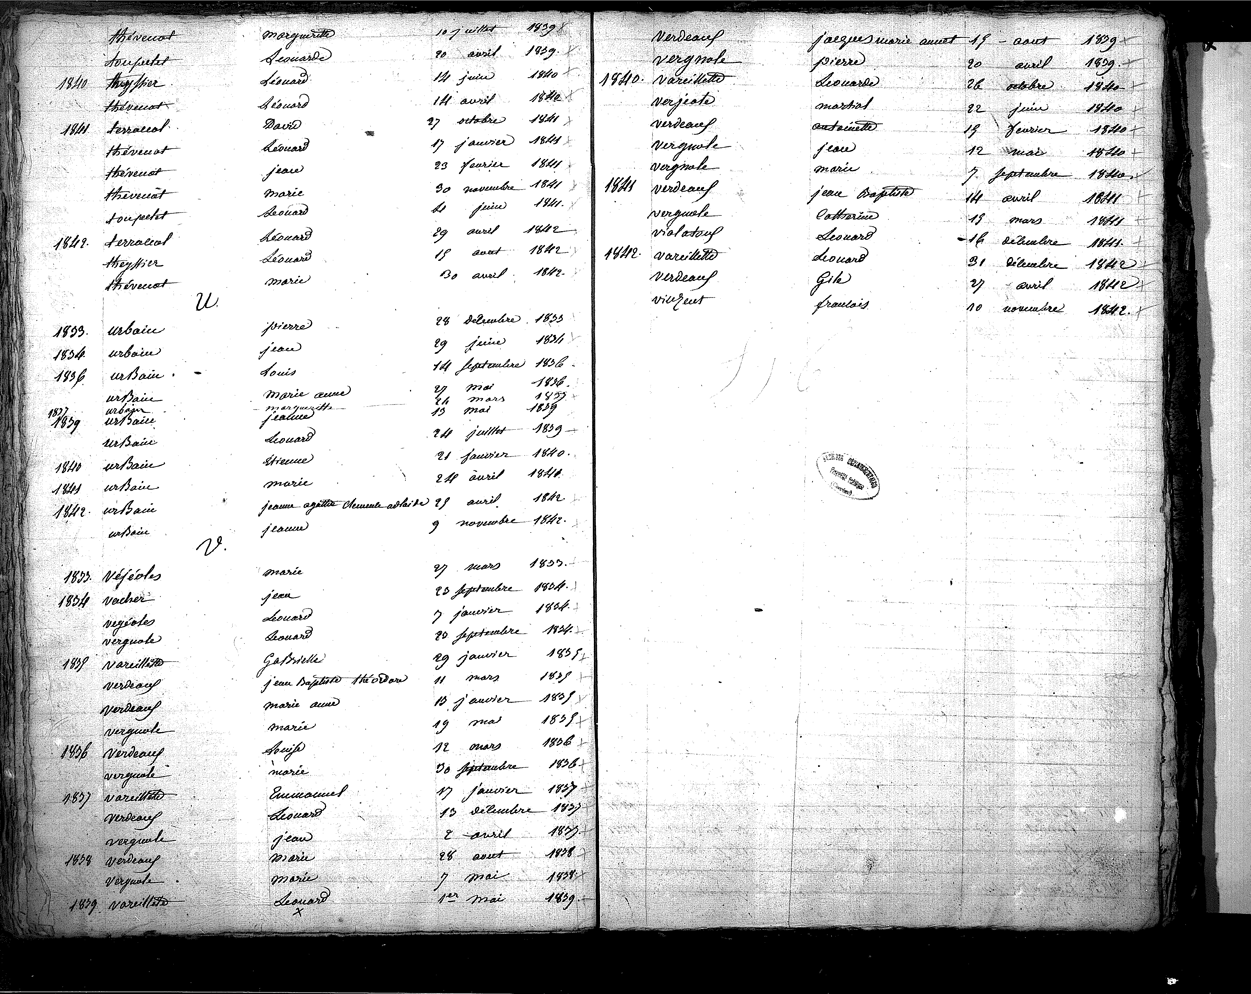 thévenot marguerite 10 juillet 1839
toupetet Léonarde 20 avril 1839.
1840 theyssier Léonard 14 juin 1840
thévenot Léonard 14 avril 1840
1841 terracol. David 27 octobre 1841
thévenot Léonard 17 janvier 1841
thévenot jean 23 fevrier 1841
thevenot marie 30 novembre 1841
toupetet Léonard 4 juin 1841.
1842. terracol Léonard 29 avril 1842
theyssier Léonard 15 aout 1842
thévenot marie 30 avril 1842.
U
1833. urbain pierre 28 décembre 1833
1834 urbain jean 29 juin 1834
1836 urBain. Louis 14 septembre 1836.
urBain marie anne 27 mai 1836.
1837 urbain marguerite 24 mars 1837
1839 urBain jeanne 13 mai 1839
urBain Léonard 24 juillet 1839
urBain Etienne 21 janvier 1840.
1840 urBain marie 24 avril 1840.
1841 urBain
1842. urBain jeanne agathe clemence adelaïde 25 avril 1842
urBain jeanne 9 novembre 1842.
V.
1833. végéoles marie 27 mars 1833.
1834 vacher jean 23 septembre 1834.
vegéoles Léonard 7 janvier 1834
vergnole Léonard 20 septembre 1834.
1835 vareillette GaBrielle 29 janvier 1835
verdeaux jean Baptiste théodore 11 mars 1835
verdeaux marie anne 13 janvier 1835
vergnole marie 19 mai 1835
1836 verdeaux Louise 12 mars 1836
vergnole marie 30 septembre 1836
1837 vareillette Emmanuel 17 janvier 1837
verdeaux Léonard 13 décembre 1837
vergnole jean 2 avril 1837
1838 verdeaux marie 28 aout 1838
vergnole. marie 7 mai 1838
1839 vareillette Léonard 1er mai 1839
verdeaux jacques marie annet 15 aout 1839
vergnole pierre 20 avril 1839
1840. vareillette Léonarde 26 octobre 1840
verjeole martial 22 juin 1840
verdeaux antoinette 15 fevrier 1840
vergnole jean 12 mai 1840
vergnole marie 7 septembre 1840
1841 verdeaux jean Baptiste 14 avril 1841
vergnole Catherine 15 mars 1841
violatoux Léonard 16 décembre 1841
1842. vareillette Léonard 31 décembre 1842
verdeaux Gile 27 avril 1842
vinzent francois 10 novembre 1842.